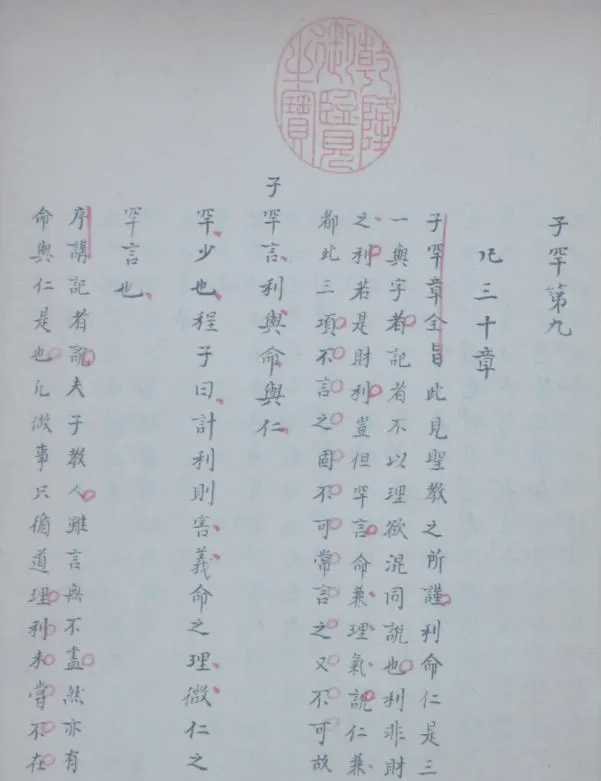 乾隆御覽之寶
子罕第九
凡三十章
子罕章全旨此見聖教之所謹利命仁是三
一與字者記者不以理欲混同說也利非財
之利若是財利豈但罕言命兼理氣說仁兼
都此三項不言之固不可常言之又不可故
子罕言利與命與仁
罕少也程子曰計利則害義命之理微仁之
罕言也
序講記者說夫子教人雖言無不盡然亦有
命與仁是也凡做事只循道理利未嘗不在